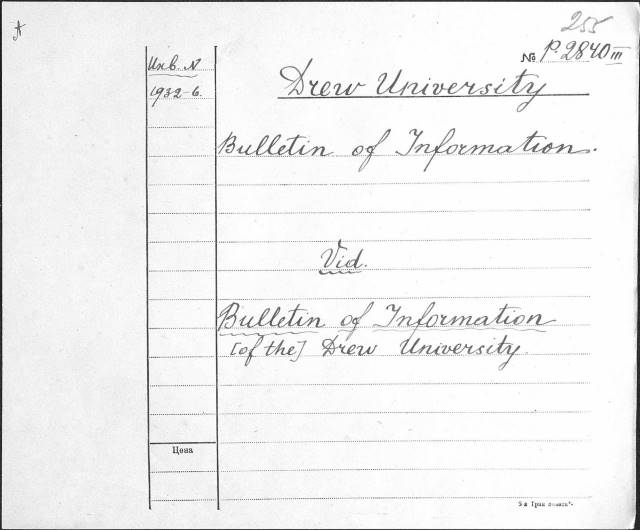 A
255
№ P.2840 III
Инв. N
Drew University
1932-6.
Bulletin of Information.
Vid.
Bulletin of Information
[of the] Drew University.
Цена